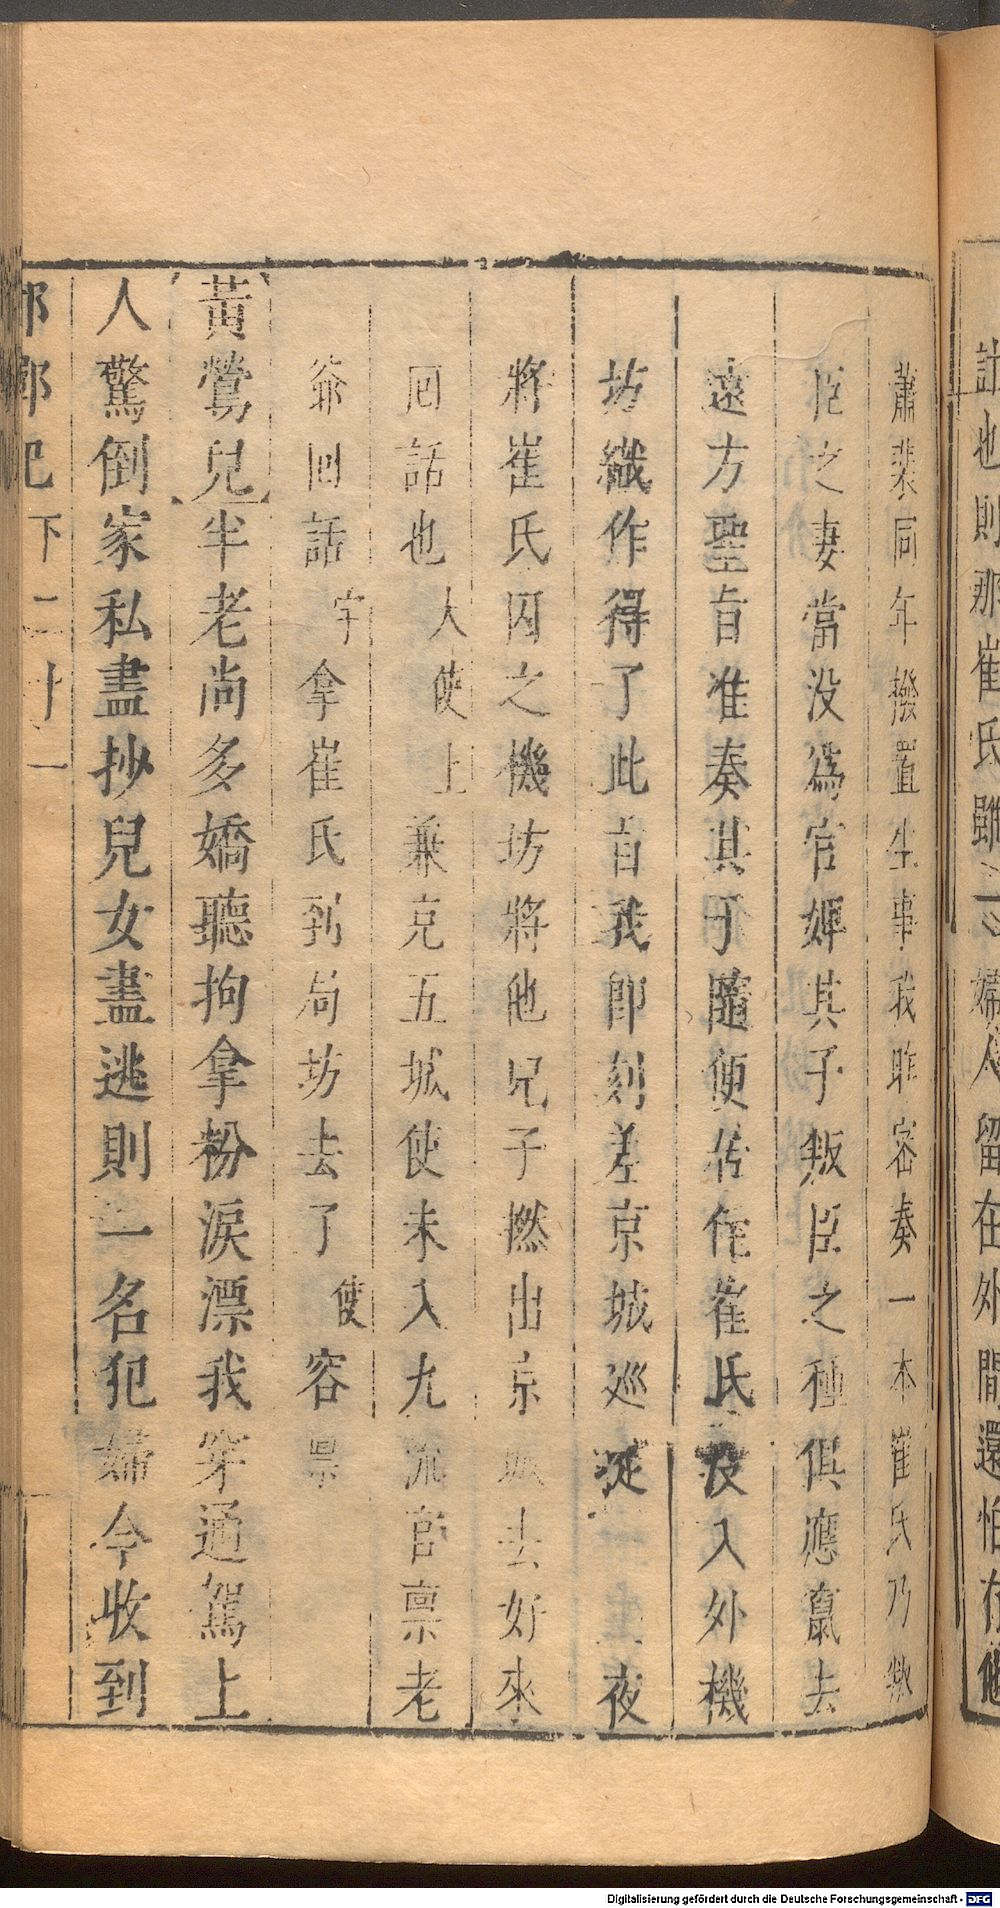 計也則那崔氏雖一婦人留在外間還怕有他
蕭裴同年撥置生事我昨密奏一本崔氏乃叛
臣之妻當没爲官婢其子叛臣之種俱應竄去
遠方聖旨准奏其子隨便居作崔氏没入外機
坊織作得了此旨我即刻差京城巡 夜
將崔氏囚之機坊將他兒子撚出京城去好來
囘話也 大使上 兼充五城使未入九流官禀老
爺回話 宇 拿崔氏到局坊去了 使 容禀
黃鶯兒半老尚多嬌聽拘拿粉淚漂我穿通駕上
人驚倒家私盡抄兒女盡逃則一名犯婦今收到
邯鄲記 下 二十一
Digitalisierung gefördert durch die Deutsche Forschungsgemeinschaft - DFG